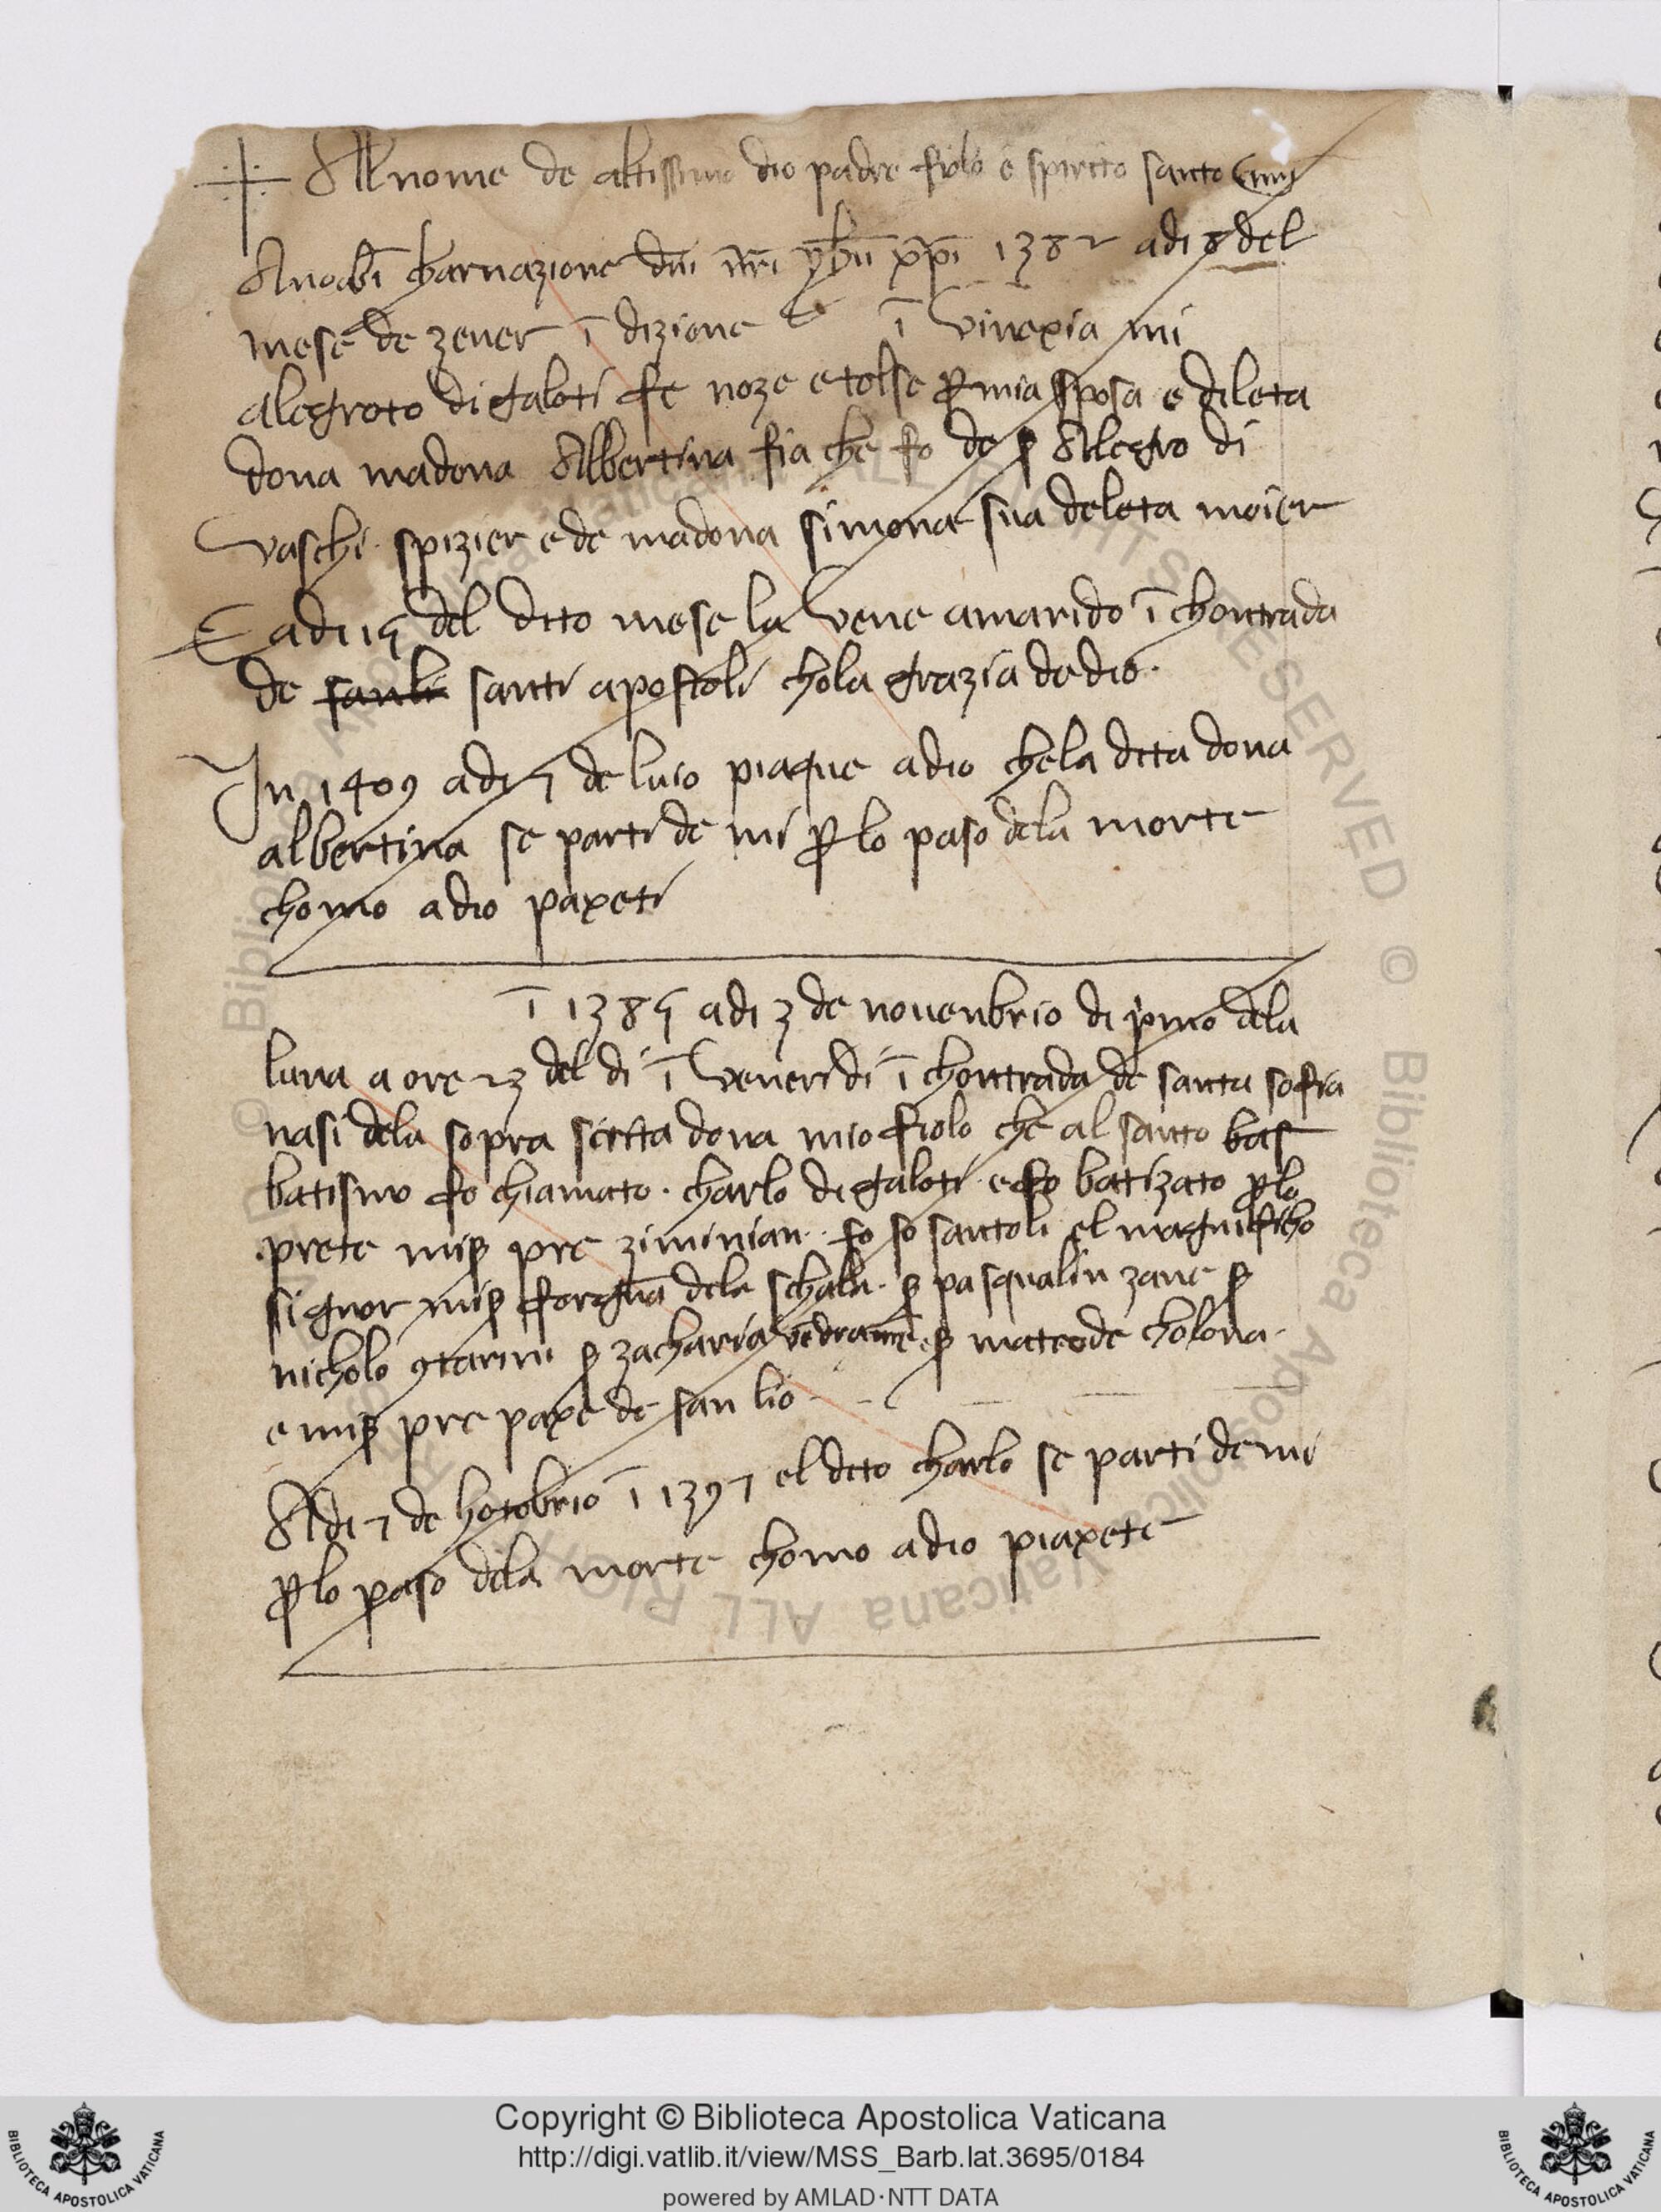 Al nome de altissimo dio padre fiolo e spirito santo
Anoabī charnazione dn̄i nr̄i yh̄u xp̄i 1382 adi 8 del
mese de zener ī dizione ī Vinexia mi
alegroto di galoti fe noze e tolse ꝑ mia sposa e dileta
dona madona Albertina fia che fo de ẜ Alegro di
vaschi · spizier e de madona simona sua deleta moier
E adi 15 del dito mese la vene a marido ī chontrada
de santi apostoli chola grazia de dio ·
In 1409 adi 7 de luio piaque a dio che la dita dona
albertina se parti de mi ꝑ lo paso dela morte
chomo a dio paxeti
ī 1385 adi 3 de novenbrio di pimo dela
luna a ore 23 del di ī venerdi ī chontrada de santa sofia
nasi dela sopra scritta dona mio fiolo che al santo bat
batismo fo chiamato · charlo di galoti · e fo batizato ꝑ lo
prete miẜ pre ziminian · fo so santoli el magnificho
signor miẜ dela schala · ẜ pasqualin zane ẜ
nicholo ꝯtarini ẜ zacharia vēdramē ẜ mateo de cholona ·
e miẜ pre paxe de san lio
Adi 7 de hotobrio ī 1397 el dito charlo se parti de mi
ꝑ lo paso dela morte chomo a dio piaxete
© Biblioteca Apostolica Vaticana ALL RIGHTS RESERVED © Biblioteca Apostolica Vaticana ALL RIGHTS RESERVED
Copyright © Biblioteca Apostolica Vaticana
http://digi.vatlib.it/view/MSS_Barb.lat.3695/0184
powered by AMLAD·NTT DATA
BIBLIOTECA APOSTOLICA VATICANA
BIBLIOTECA APOSTOLICA VATICANA